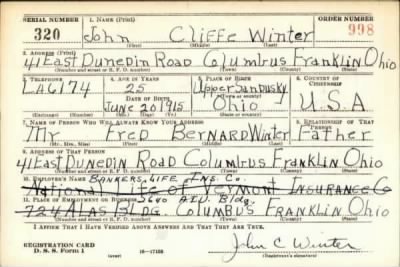 SERIAL NUMBER 1. NAME (Print) ORDER NUMBER
320 John Cliffe Winter 998
(First) (Middle) (Last)
2. ADDRESS (Print)
41 East Dunedin Road Columbus Franklin Ohio
(Number and street or R. F. D. number) (Town) (County) (State)
3. TELEPHONE 4. AGE IN YEARS 5. PLACE OF BIRTH 6. COUNTRY OF CITIZENSHIP
LA 6174 25 Upper Sandusky
DATE OF BIRTH
June 20 1915 Ohio U.S.A
(Mo.) (Day) (Yr.) (State or country)
7. NAME OF PERSON WHO WILL ALWAYS KNOW YOUR ADDRESS 8. RELATIONSHIP OF THAT PERSON
Mr Fred Bernard Winter Father
(Mr., Mrs., Miss) (First) (Middle) (Last)
9. ADDRESS OF THAT PERSON
41 East Dunedin Road Columbus Franklin Ohio
(Number and street or R. F. D. number) (Town) (County) (State)
10. EMPLOYER'S NAME BANKERS LIFE INS. CO.
National Life of Vermont Insurance Co
11. PLACE OF EMPLOYMENT OR BUSINESS 3640 A.I.U. Bldg.
724 Atlas Bldg. Columbus Franklin Ohio
(Number and street or R. F. D. number) (Town) (County) (State)
I AFFIRM THAT I HAVE VERIFIED ABOVE ANSWERS AND THAT THEY ARE TRUE.
REGISTRATION CARD
D. S. S. Form 1 16—17105 John C Winter
(Registrant's signature)